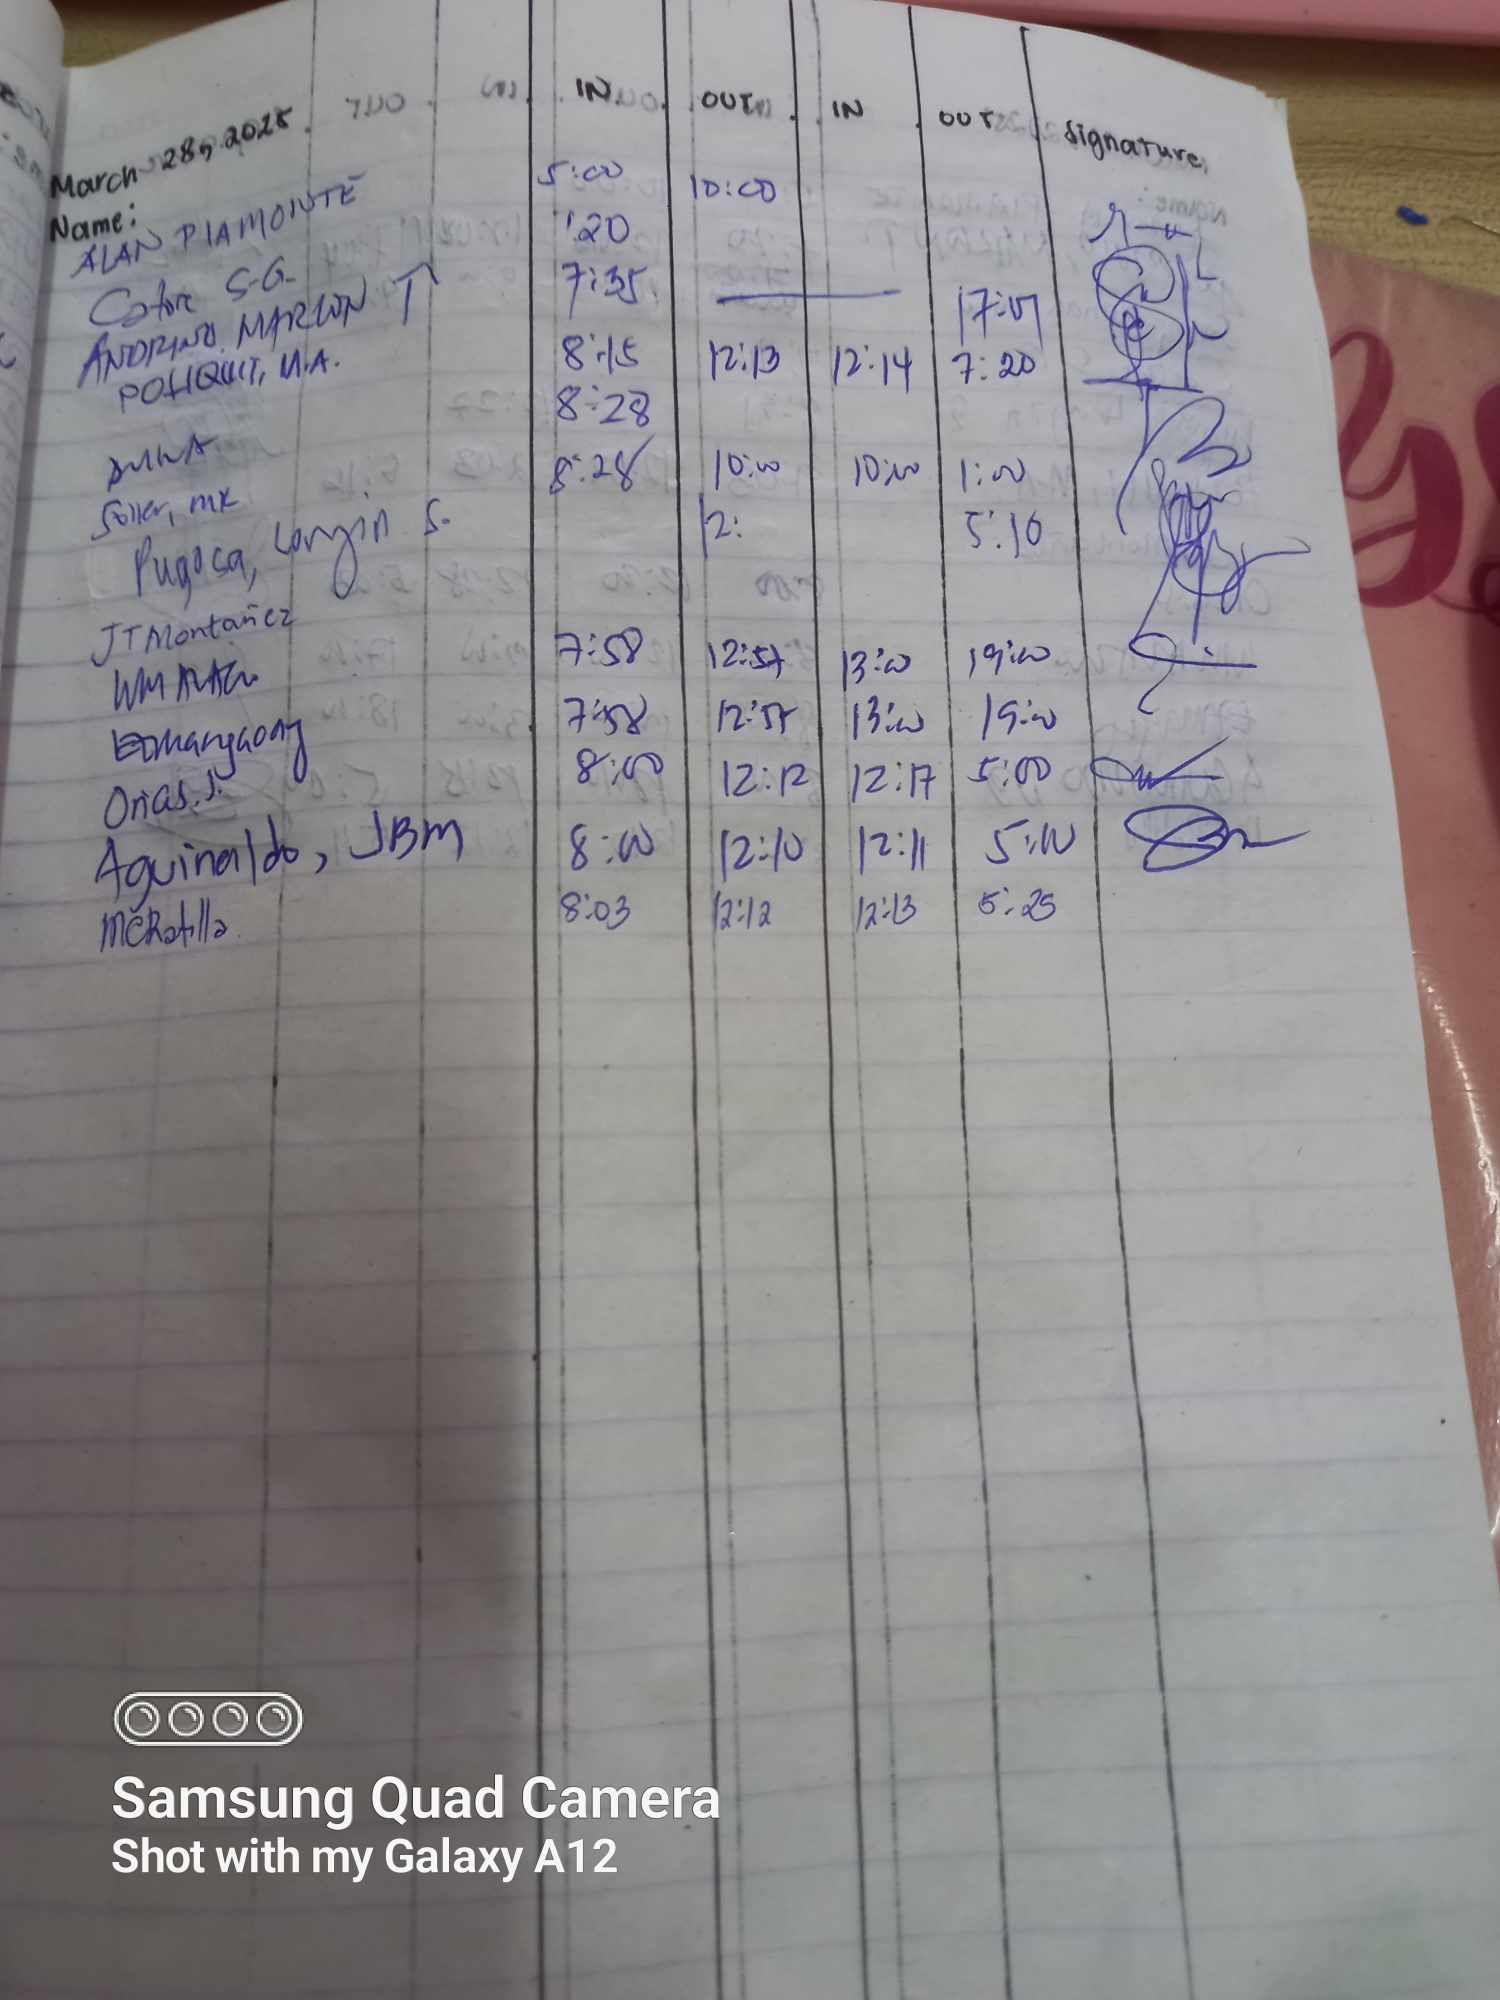 March 28, 2025 IN OUT IN OUT Signature
Name:
ALAN PIAMONTE 5:00 10:00
S.G. :20
ANDRINO MARLON T 7:35 17:01
POHQUIT, M.A. 8:15 12:13 12:14 7:20
8:28
Soller, MK 8:28 10:00 10:00 1:00
Pugosa, Longin S. 12: 5:10
JT Montañez
7:58 12:57 13:00 19:00
7:58 12:57 13:00 19:00
Orias, J. 8:00 12:12 12:17 5:00
Aguinaldo, JBM 8:00 12:10 12:11 5:10
MCRatilla 8:03 12:12 12:13 5:25
Samsung Quad Camera
Shot with my Galaxy A12